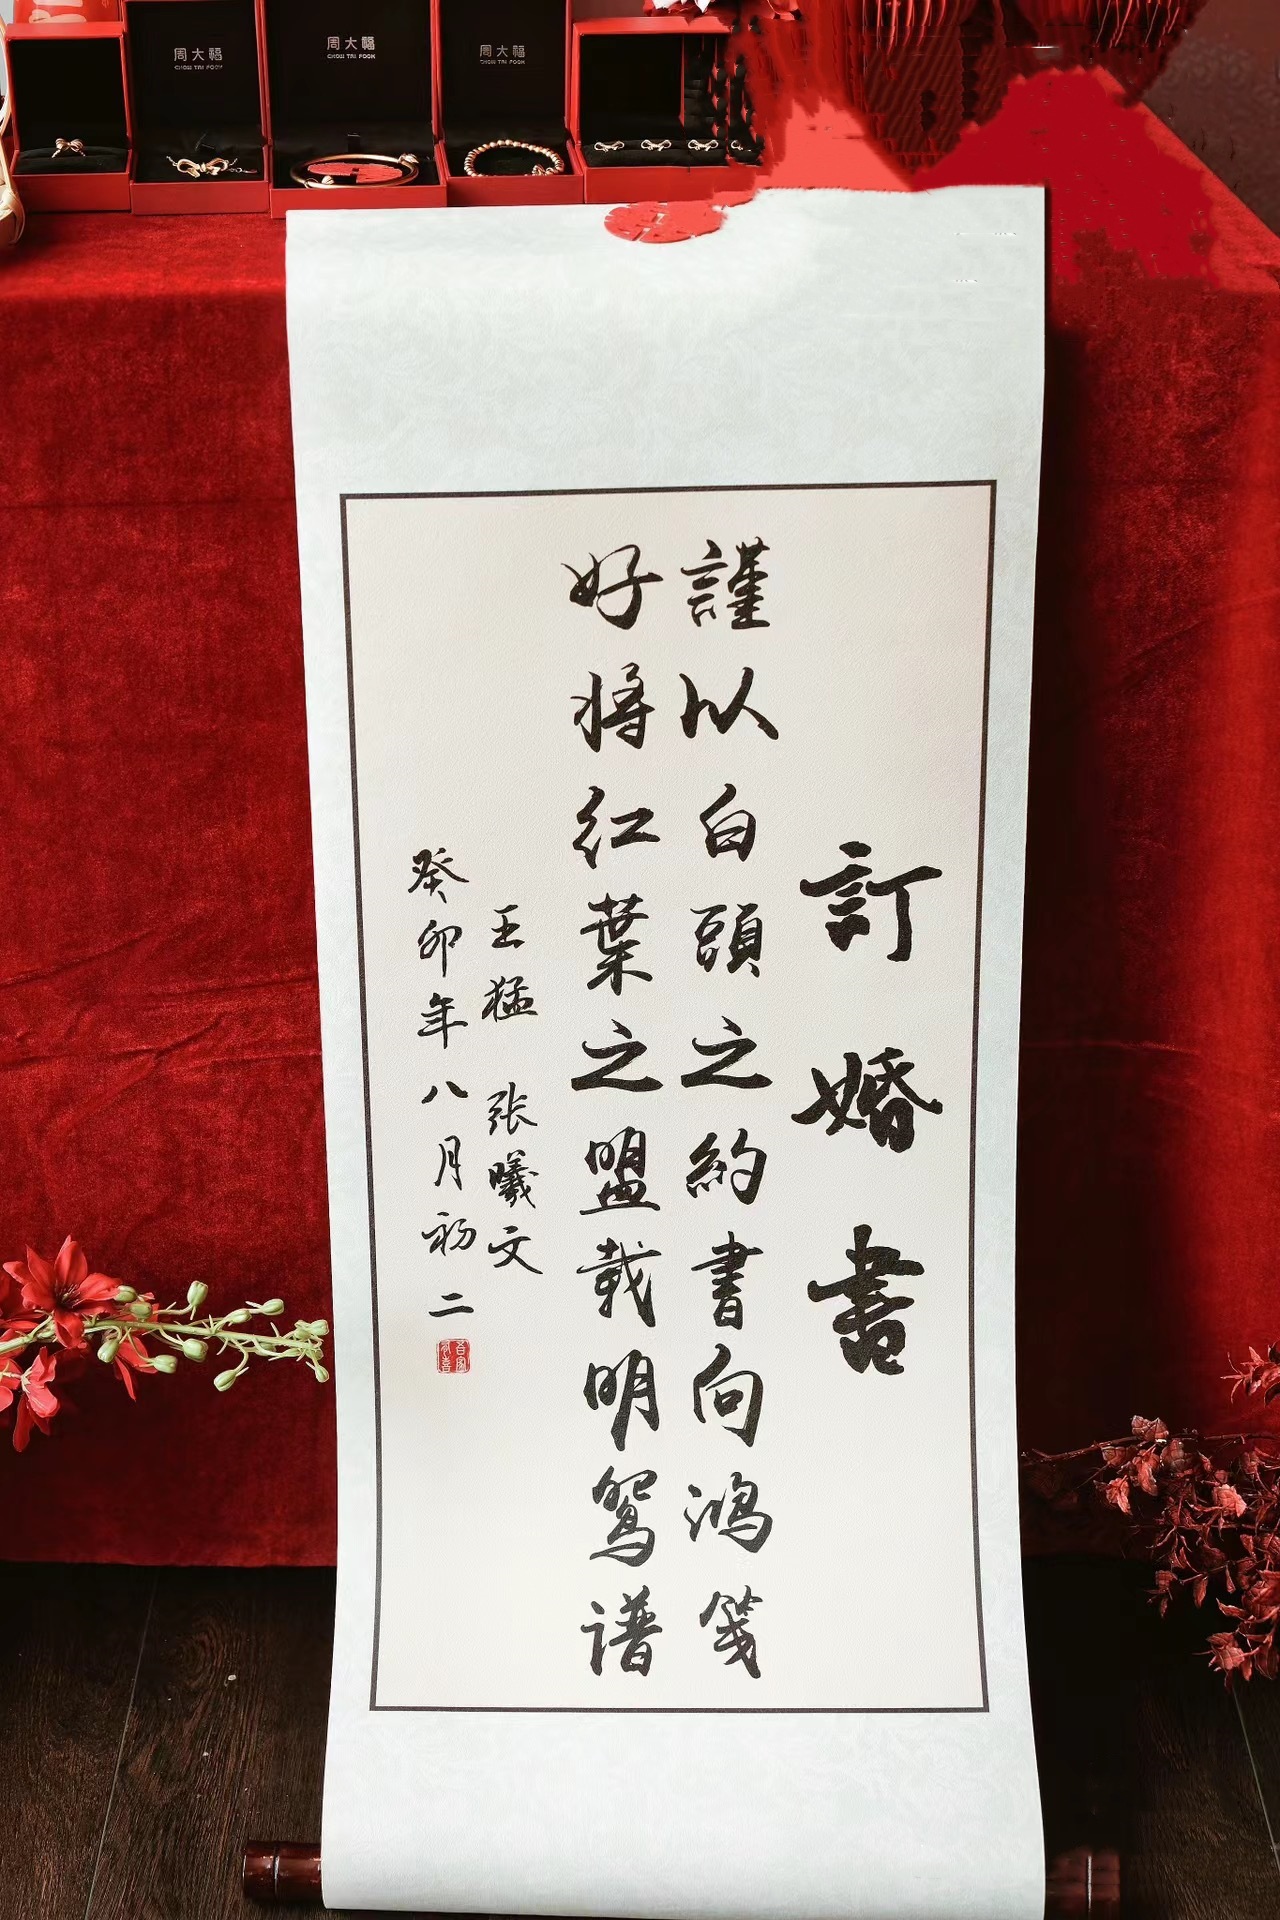 周大福
CHOW TAI FOOK
周大福
CHOW TAI FOOK
周大福
CHOW TAI FOOK
訂婚書
謹以白頭之約書向鴻笺
好将红葉之盟载明鸳谱
王猛 张曦文
癸卯年八月初二